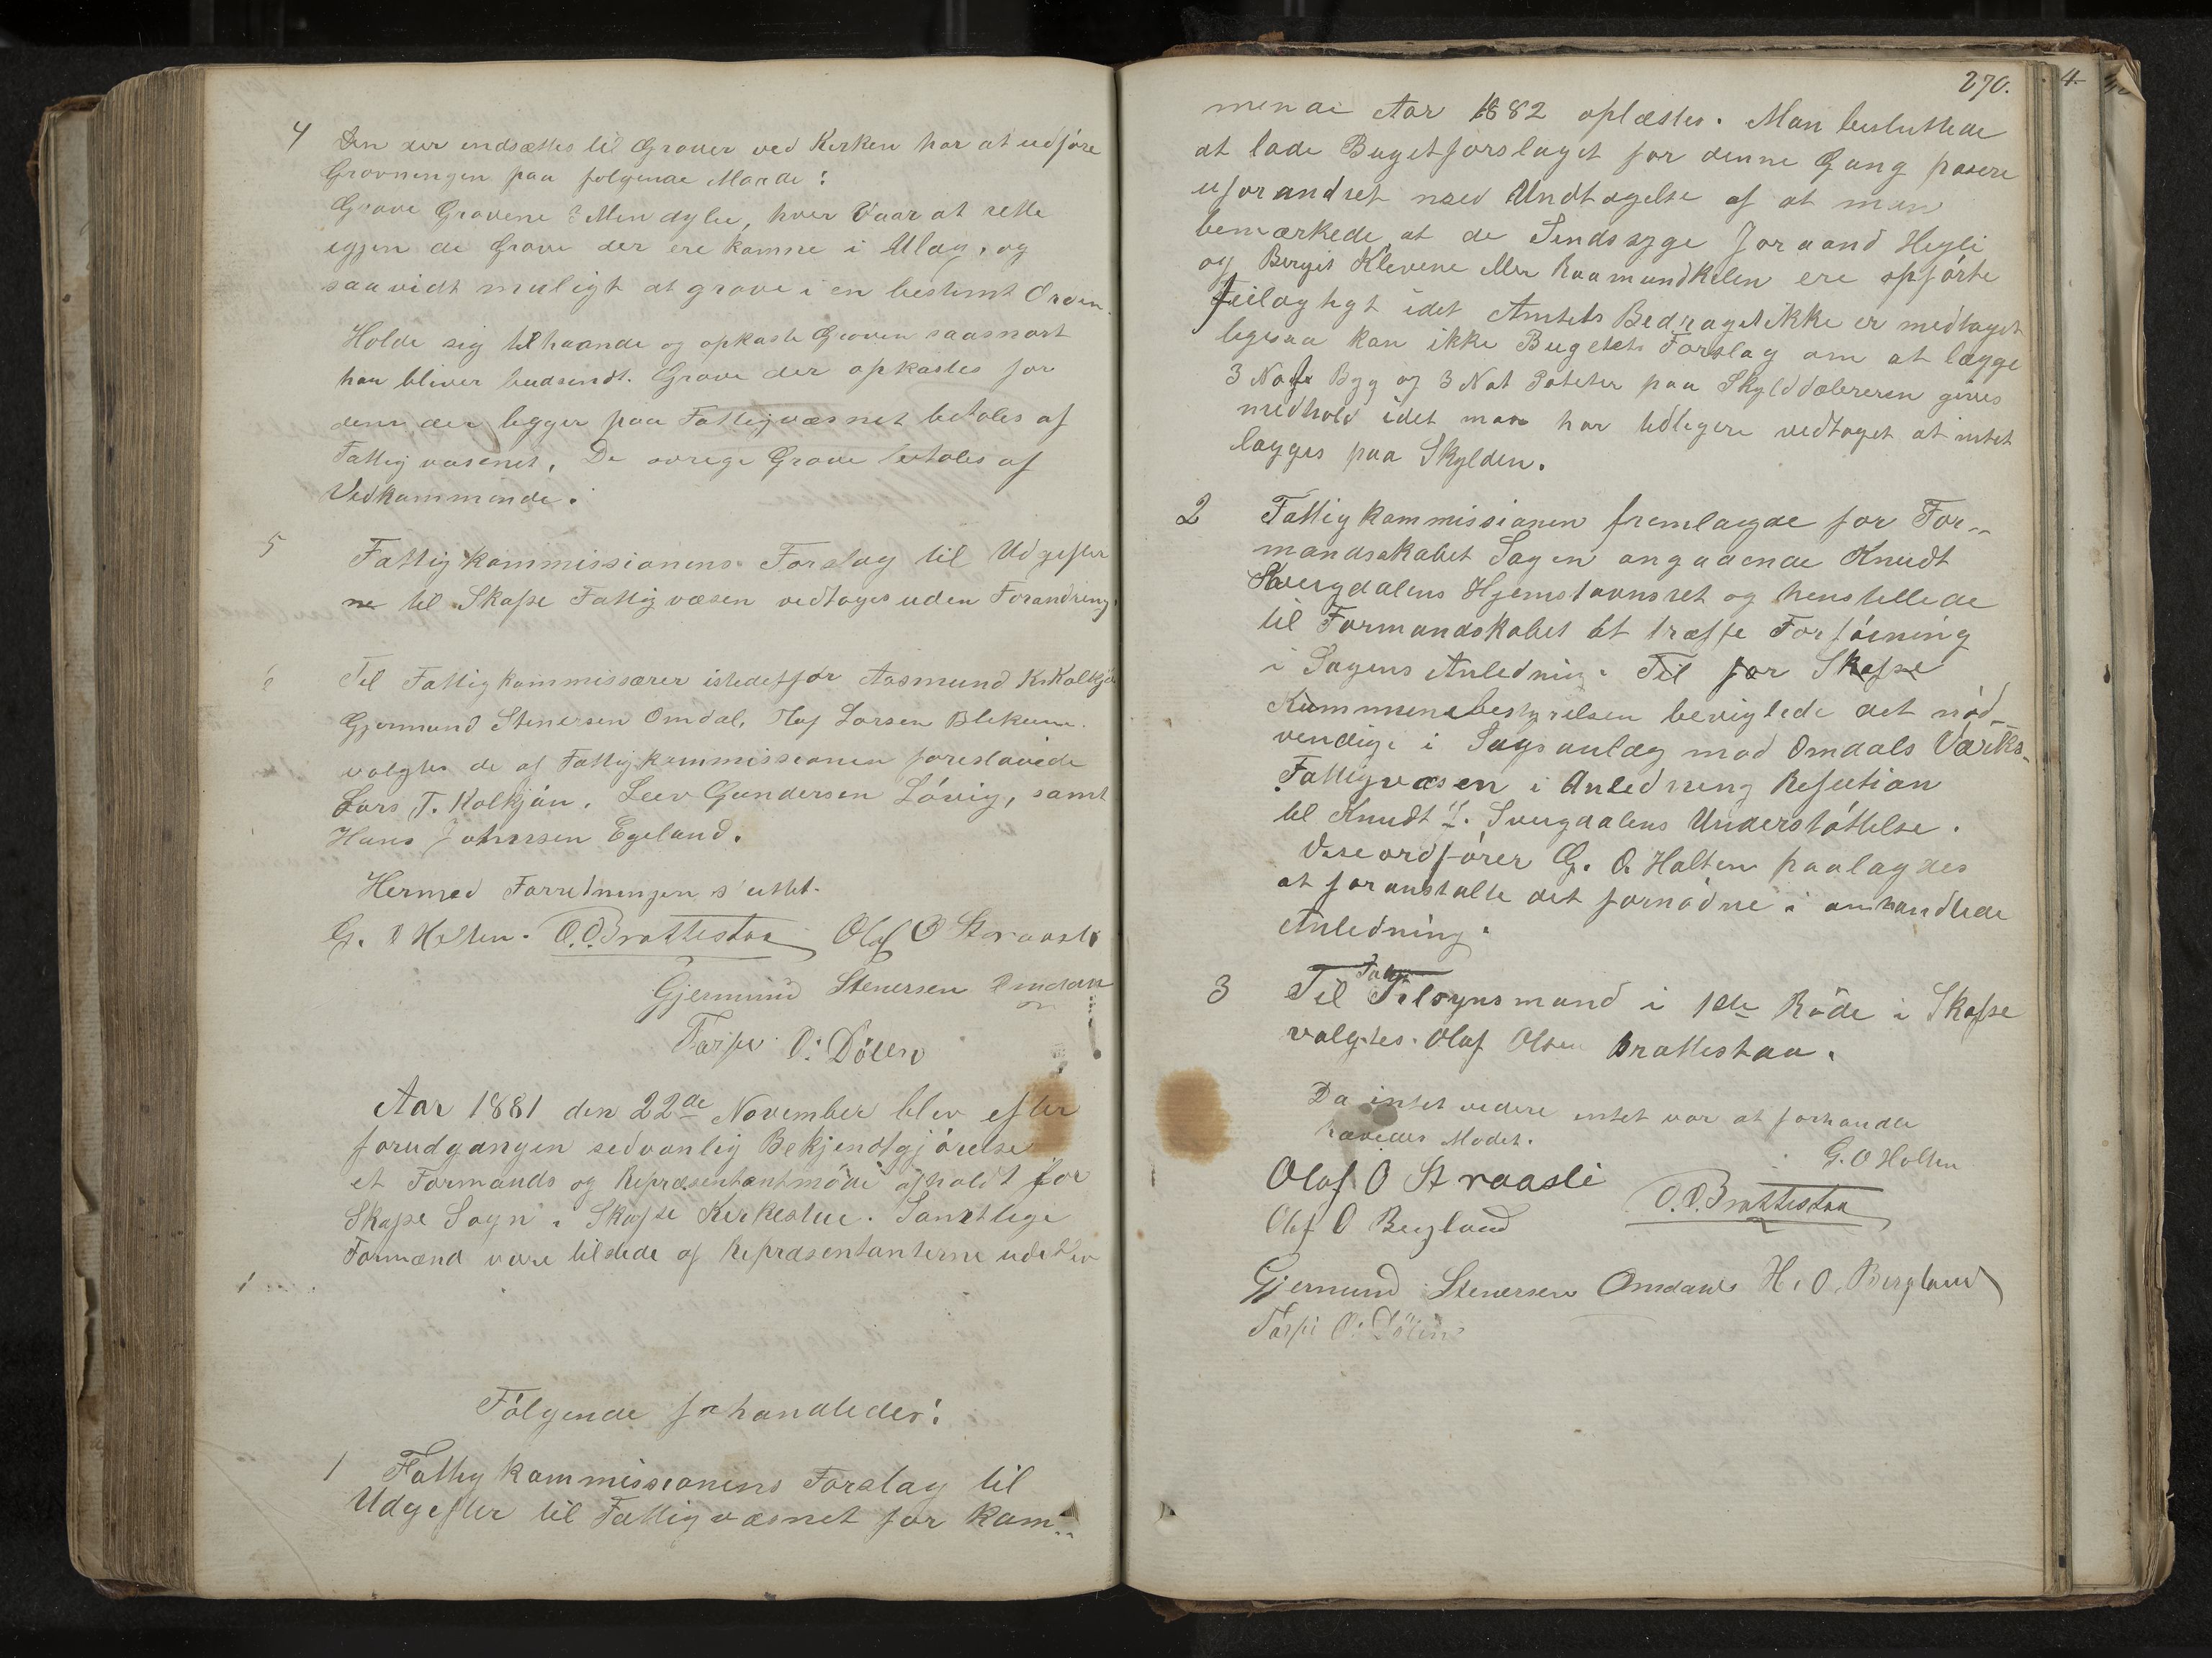 4 Den der indsættes til Graver ved Kirken har at udføre
Gravningen paa følgende Maade:
Grave Gravene 3 Alen dybe, hver Vaar at rette
igjen de Grave der ere komne i Ulag, og
saavidt muligt at grave i en bestemt Orden.
Holde sig tilhaande og opkaste Graven saasnart
han bliver budsendt. Grave der opkastes for
dem der ligger paa Fattigvæsnet betales af
Fattigvæsenet. De øvrige Grave betales af
Vedkommende.
5 Fattigkommissionens Forslag til Udgifter
til Skafse Fattigvæsen vedtoges uden Forandring.
6 Til Fattigkommissærer istedetfor Aasmund K. Kalkjøn
Gjermund Stenersen Omdal, Olaf Larsen
valgtes de af Fattigkommissionen foreslaaede
Lars T. Kalkjøn, Leiv Gundersen Løvig, samt
Hans Johnsen Egeland.
Hermed Forretningen sluttet.
G. O Holten. O. O. Brattestaa Olaf O Straasli
Gjermund Stenersen Omdal
Tarjei O: Dølen
Aar 1881 den 22de November blev efter
forudgangen sedvanlig Bekjendtgjørelse
et Formands og Repræsentantmøde afholdt for
Skafse Sogn i Skafse Kirkestue. Samtlige
Formænd vare tilstede af Repræsentanterne udeblev
1
Følgende forhandledes:
1 Fattigkommissionens Forslag til
Udgifter til Fattigvæsnet for kom-
270.
4
mende Aar 1882 oplæstes. Man besluttede
at lade Bugetforslaget for denne Gang passere
uforandret med Undtagelse af at man
bemærkede at de Sindssyge Joraand Hegli
og Berget Klevene eller Raamundkilen ere opførte
feilagtigt idet Amtets Bedraget ikke er medtaget
ligesaa kan ikke Bugetets Forslag om at lægge
3 Byg og 3 Poteter paa Skylddaleren gives
medhold idet man har tidligere vedtaget at intet
lægges paa Skylden.
2 Fattigkommissionen fremlagde for For-
mandsskabet Sagen angaaende Knudt
Svergdalens Hjemstavnsret og henstillede
til Formandskabet at træffe Forføining
i Sagens Anledning. Til for Skafse
Kommunebestyrelsen beviglede det nød-
vendige i Sagsanlæg mod Omdals Værks
Fattigvæsen i Anledning Refution
til Knudt Svergdalens Understøttelse.
Viseordfører G. O. Holten paalagdes
at foranstalte det fornødne i omhandlede
Anledning.
3 Til Tilsynsmand i 1ste Røde i Skafse
valgtes Olaf Olsen Brattestaa.
Da intet videre intet var at forhandle
hævedes Modet.
G. O Holten
Olaf O Straasli
O. O. Brattestaa
Olaf O Bergland
Gjermund Stenersen Omdal H. O. Bergland
Tarjei O: Dølen